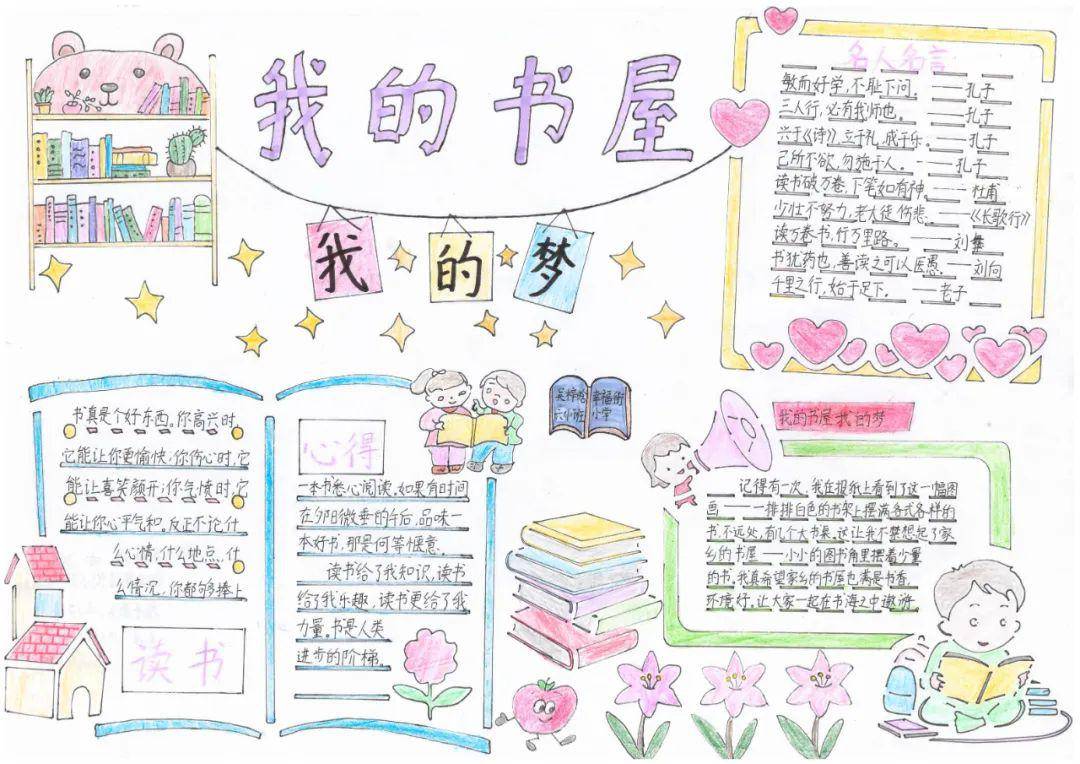 我的书屋
我的梦
名人名言
敏而好学,不耻下问。——孔子
三人行,必有我师也。——孔子
兴于《诗》,立于礼,成于乐。——孔子
己所不欲,勿施于人。——孔子
读书破万卷,下笔如有神。——杜甫
少壮不努力,老大徒伤悲。——《长歌行》
读万卷书,行万里路。——刘彝
书犹药也,善读之可以医愚。——刘向
千里之行,始于足下。——老子
书真是个好东西,你高兴时,
它能让你更愉快,你伤心时,它
能让喜笑颜开;你气愤时,它
能让你心平气和。反正不论什
么心情,什么地点,什
么情况,你都够捧上
读书
心得
一本书悉心阅读,如果有时间
在夕阳微垂的午后,品味一
本好书,那是何等惬意。
读书给了我知识,读书
给了我乐趣,读书更给了我
力量。书是人类
进步的阶梯。
幸福街
六小班 小学
我的书屋 我的梦
记得有一次,我在报纸上看到了这一幅图
画——一排排白色的书架上摆满各式各样的
书,不远处,有几个大书桌。这让我不禁想起了家
乡的书屋——小小的图书角里摆着少量
的书,我真希望家乡的书屋也满是书香,
环境好。让大家一起在书海之中遨游。